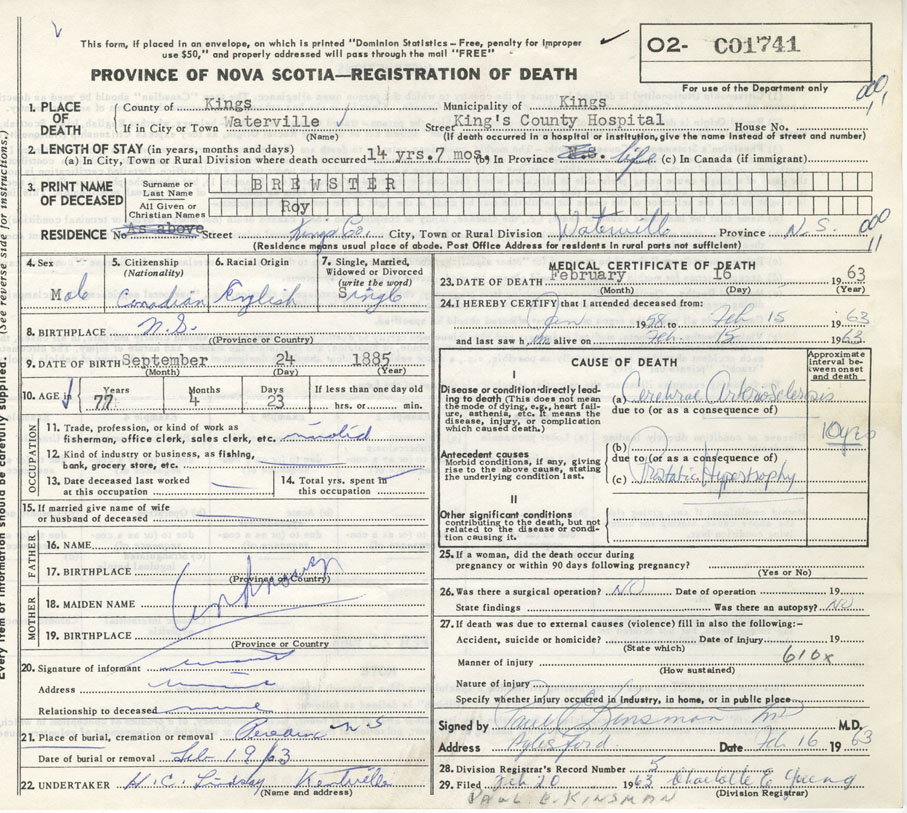 This form, if placed in an envelope, on which is printed "Dominion Statistics – Free, penalty for improper
use $50," and properly addressed will pass through the mail "FREE"
PROVINCE OF NOVA SCOTIA—REGISTRATION OF DEATH
O2- C01741
For use of the Department only
1. PLACE OF DEATH County of Kings Municipality of Kings
If in City or Town Waterville Street King's County Hospital House No.
(Name) (If death occurred in a hospital or institution, give the name instead of street and number)
2. LENGTH OF STAY (in years, months and days)
(a) In City, Town or Rural Division where death occurred 14 yrs. 7 mos. (b) In Province N.S. life (c) In Canada (if immigrant)
3. PRINT NAME OF DECEASED Surname or Last Name BREWSTER
All Given or Christian Names Roy
RESIDENCE No. As above Street Kings Co. City, Town or Rural Division Waterville Province N.S.
(Residence means usual place of abode. Post Office Address for residents in rural parts not sufficient)
4. Sex Male
5. Citizenship (Nationality) Canadian
6. Racial Origin English
7. Single, Married, Widowed or Divorced (write the word) Single
8. BIRTHPLACE N.S.
(Province or Country)
9. DATE OF BIRTH September 24 1885
(Month) (Day) (Year)
10. AGE in Years 77 Months 4 Days 23 If less than one day old hrs. or min.
OCCUPATION
11. Trade, profession, or kind of work as fisherman, office clerk, sales clerk, etc.
12. Kind of industry or business, as fishing, bank, grocery store, etc.
13. Date deceased last worked at this occupation
14. Total yrs. spent in this occupation
15. If married give name of wife or husband of deceased
FATHER
16. NAME
17. BIRTHPLACE
(Province or Country)
Unknown
MOTHER
18. MAIDEN NAME
19. BIRTHPLACE
(Province or Country)
20. Signature of informant
Address
Relationship to deceased
21. Place of burial, cremation or removal N S
Date of burial or removal Feb 19/63
22. UNDERTAKER H. C. Lindsay Kentville
(Name and address)
MEDICAL CERTIFICATE OF DEATH
23. DATE OF DEATH February 16 1963
(Month) (Day) (Year)
24. I HEREBY CERTIFY that I attended deceased from:
Jan 1958 to Feb 15 1963
and last saw him alive on Feb. 15 1963
CAUSE OF DEATH
Approximate interval between onset and death
I
Disease or condition-directly leading to death (This does not mean the mode of dying, e.g., heart failure, asthenia, etc. It means the disease, injury, or complication which caused death.)
(a) Cerebral Arteriosclerosis
due to (or as a consequence of)
10 yrs
Antecedent causes
Morbid conditions, if any, giving rise to the above cause, stating the underlying condition last.
(b)
due to (or as a consequence of)
(c) Prostatic Hypertrophy
II
Other significant conditions
contributing to the death, but not related to the disease or condition causing it.
25. If a woman, did the death occur during
pregnancy or within 90 days following pregnancy?
(Yes or No)
26. Was there a surgical operation? NO Date of operation 19
State findings Was there an autopsy? NO
27. If death was due to external causes (violence) fill in also the following:-
Accident, suicide or homicide? Date of injury 19
(State which)
610x
Manner of injury
(How sustained)
Nature of injury
Specify whether injury occurred in industry, in home, or in public place
Signed by Paul Kinsman MD M.D.
Address Aylesford Date Feb 16 1963
28. Division Registrar's Record Number 5
29. Filed Feb 20 1963 Charlotte E Young
(Division Registrar)
PAUL E. KINSMAN
(See reverse side for instructions.)
Every item of information should be carefully supplied.